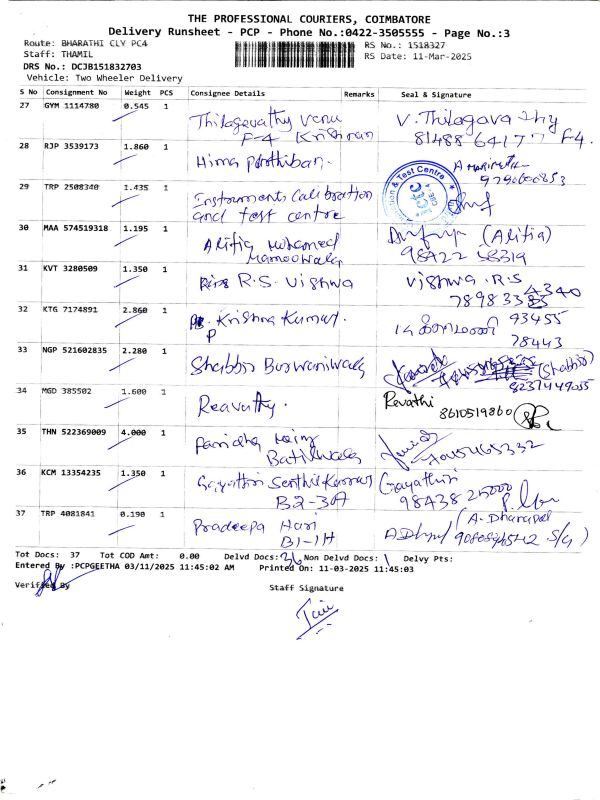 THE PROFESSIONAL COURIERS, COIMBATORE
Delivery Runsheet - PCP - Phone No.:0422-3505555 - Page No.:3
Route: BHARATHI CLY PC4 RS No.: 1518327
Staff: THAMIL RS Date: 11-Mar-2025
DRS No.: DCJB151832703
Vehicle: Two Wheeler Delivery
S No Consignment No Weight PCS Consignee Details Remarks Seal & Signature
27 GYM 1114780 0.545 1 Thilagavathy Venu V. Thilagava thy
F-4 Krishnan 81488 6417 F-4.
28 RJP 3539173 1.860 1 Hima Parthiban.
9790600853
29 TRP 2508340 1.435 1 Instruments Calibration
and test centre
& Test Centre
30 MAA 574519318 1.195 1 Alifia Mohamed (Alifia)
Mamoowala 98422 58319
31 KVT 3280509 1.350 1 R.S. Vishwa Vishwa .R.S
78983383 4340
32 KTG 7174891 2.860 1 Krishna Kumar. 93455
P 78443
33 NGP 521602835 2.280 1 Shabbir Burwaniwala (Shabbir)
34 MGD 385502 1.600 1 Reavathy. Revathi
8610519860
35 THN 522369009 4.000 1
Batliwala 7045465332
36 KCM 13354235 1.350 1 Gayathri Senthil Kumar Gayathiri
B2-3A 98438 25000
37 TRP 4081841 0.190 1 Pradeepa Hari (A. Dhanapal
B1-1H S/G)
Tot Docs: 37 Tot COD Amt: 0.00 Delvd Docs: 36 Non Delvd Docs: 1 Delvy Pts:
Entered By :PCPGEETHA 03/11/2025 11:45:02 AM Printed On: 11-03-2025 11:45:03
Verified By Staff Signature